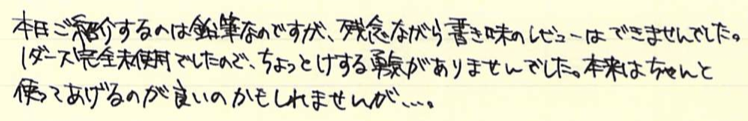 本日ご紹介するのは鉛筆なのですが、残念ながら書き味のレビューはできませんでした。
1ダース完全未使用でしたので、ちょっとけずる勇気がありませんでした。本来はちゃんと
使ってあげるのが良いのかもしれませんが…。